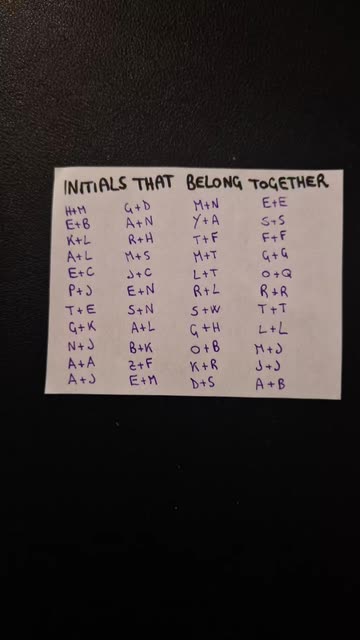 INITIALS THAT BELONG TOGETHER
H+M G+D M+N E+E
E+B A+N Y+A S+S
K+L R+H T+F F+F
A+L M+S M+T G+G
E+C J+C L+T O+Q
P+J E+N R+L R+R
T+E S+N S+W T+T
G+K A+L G+H L+L
N+J B+K O+B M+J
A+A Z+F K+R J+J
A+J E+M D+S A+B